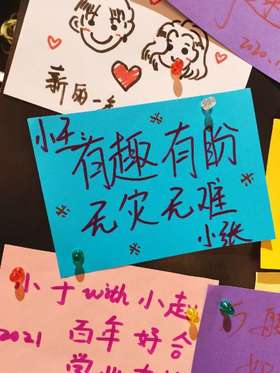 2020.1
新的一
小王:
有趣有盼
无灾无难
小张
小丁with小赵
2021 百年好合
学业有